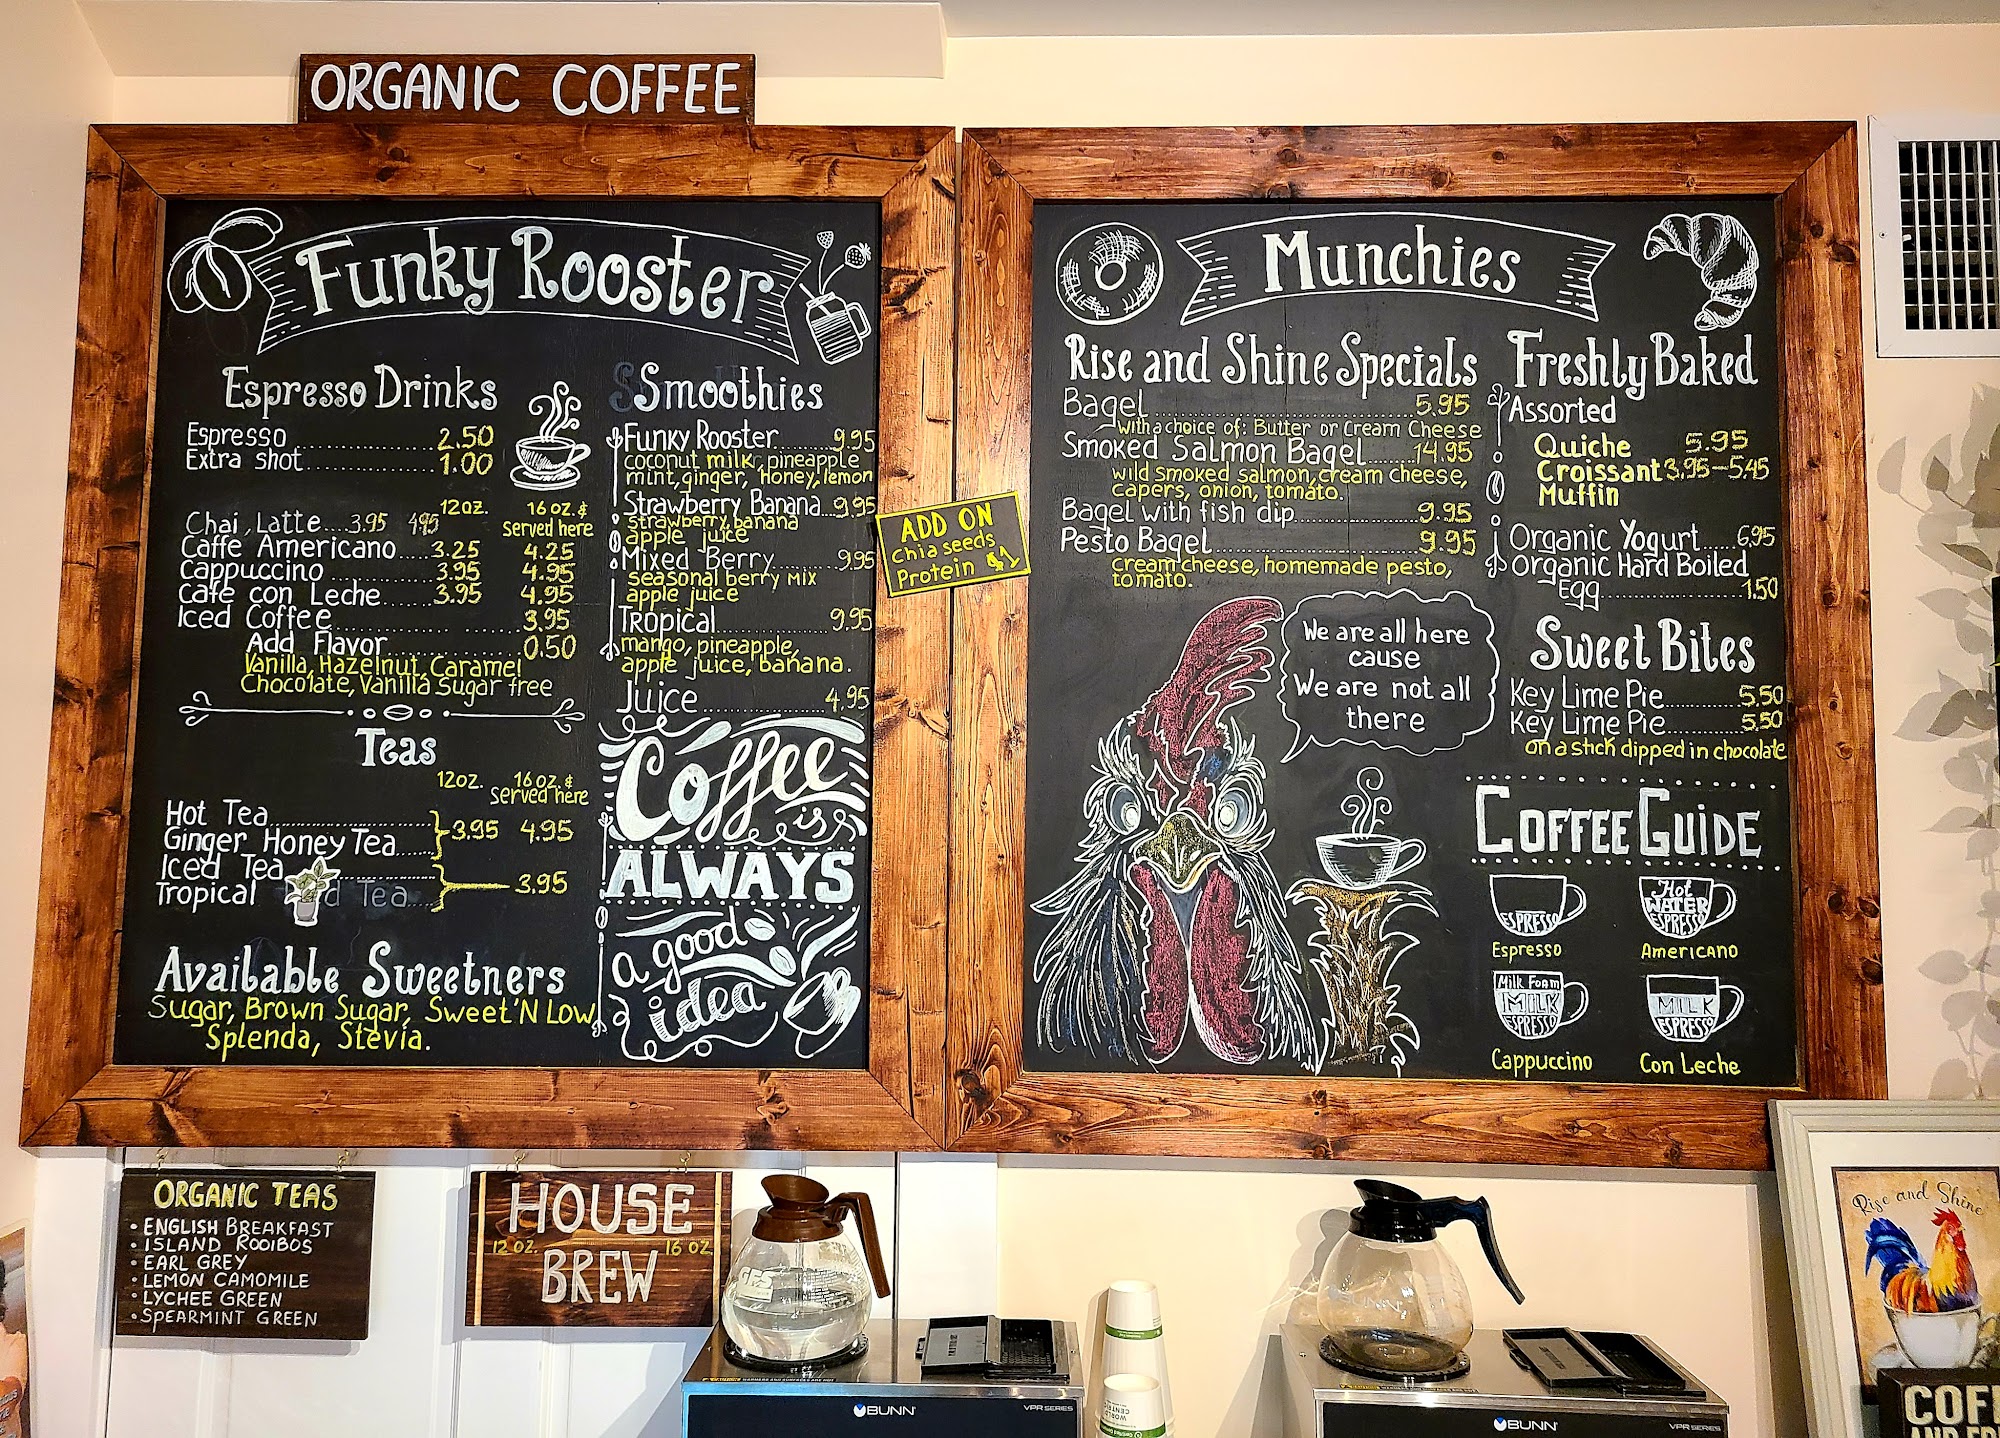 ORGANIC COFFEE
Funky Rooster
Espresso Drinks
Espresso 2.50
Extra shot 1.00
12oz. 16oz. &
served here
Chai, Latte 3.95 4.95
Caffe Americano 3.25 4.25
Cappuccino 3.95 4.95
Café con Leche 3.95 4.95
Iced Coffee 3.95
Add Flavor 0.50
Vanilla, Hazelnut, Caramel
Chocolate, Vanilla Sugar free
Teas
12oz. 16oz. &
served here
Hot Tea
Ginger Honey Tea 3.95 4.95
Iced Tea
Tropical Tea 3.95
Available Sweetners
Sugar, Brown Sugar, Sweet'N Low
Splenda, Stevia.
Smoothies
Funky Rooster 9.95
coconut milk, pineapple
mint, ginger, honey, lemon
Strawberry Banana 9.95
strawberry, banana
apple juice
Mixed Berry 9.95
seasonal berry mix
apple juice
Tropical 9.95
mango, pineapple,
apple juice, banana.
Juice 4.95
Coffee
is
ALWAYS
a good
idea
ADD ON
Chia seeds
Protein $1
Munchies
Rise and Shine Specials
Bagel 5.95
with a choice of: Butter or Cream Cheese
Smoked Salmon Bagel 14.95
wild smoked salmon, cream cheese,
capers, onion, tomato.
Bagel with fish dip 9.95
Pesto Bagel 9.95
cream cheese, homemade pesto,
tomato.
We are all here
cause
We are not all
there
Freshly Baked
Assorted
Quiche 5.95
Croissant 3.95-5.45
Muffin
Organic Yogurt 6.95
Organic Hard Boiled
Egg 1.50
Sweet Bites
Key Lime Pie 5.50
Key Lime Pie 5.50
on a stick dipped in chocolate
COFFEE GUIDE
ESPRESSO
Espresso
Hot
WATER
ESPRESSO
Americano
MILK FOAM
MILK
ESPRESSO
Cappuccino
MILK
ESPRESSO
Con Leche
ORGANIC TEAS
• ENGLISH BREAKFAST
• ISLAND ROOIBOS
• EARL GREY
• LEMON CAMOMILE
• LYCHEE GREEN
• SPEARMINT GREEN
HOUSE
12 OZ. 16 OZ.
BREW
GFS
BUNN
VPR SERIES
WORLD
CENTRIC
BUNN
BUNN
VPR SERIES
Rise and Shine
COF